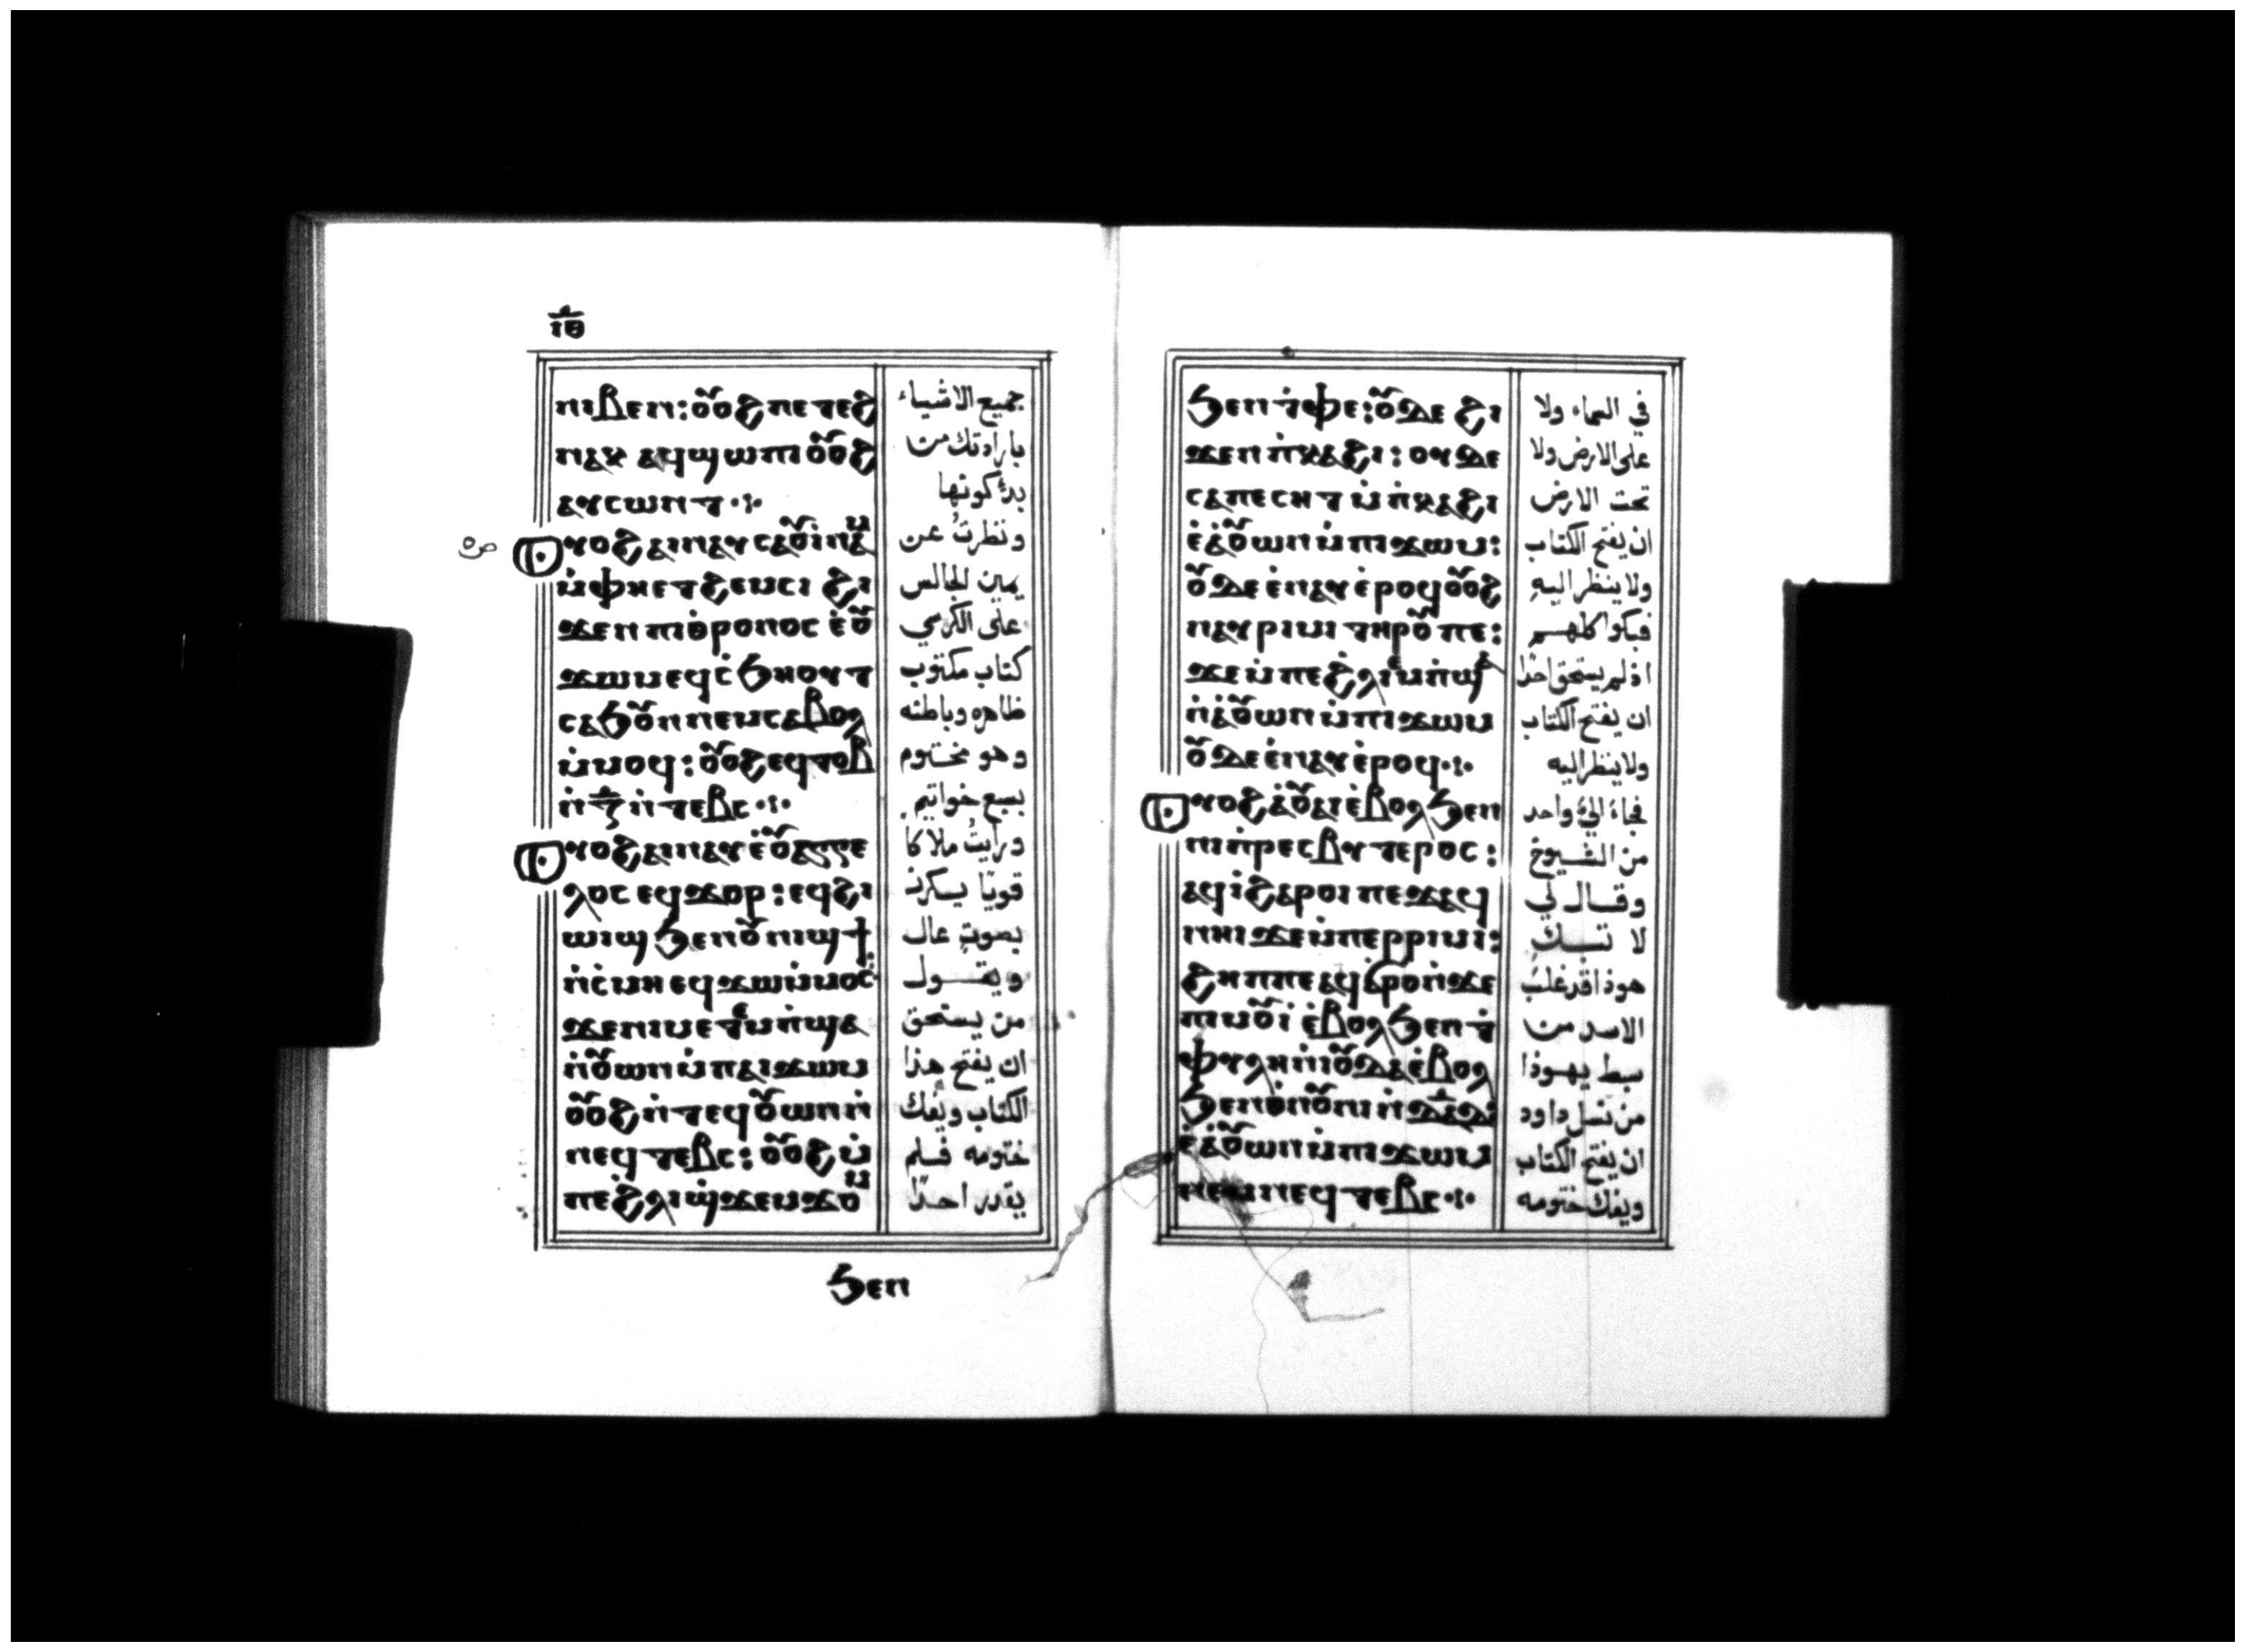 ⲓⲑ
ⲛⲓⲃⲉⲛ: ⲟⲩⲟϩ ⲡⲉⲧⲉϩ
ⲛⲁⲕ ⲁϥϣⲱⲡⲓ ⲟⲩⲟϩ
ⲁⲩⲥⲱⲛⲧ ⁘
ⲟⲩⲟϩ ⲁⲓⲛⲁⲩ ⲥⲁⲟⲩⲓ̀ⲛⲁⲙ
ⲙ̀ⲫⲏⲉⲧϩⲉⲙⲥⲓ ϩⲓ
ϫⲉⲛ ⲡⲓⲑ̀ⲣⲟⲛⲟⲥ ⲉ̀ⲟⲩ
ϫⲱⲙ ⲉϥⲥ̀ϧⲏⲟⲩⲧ
ⲥⲁϧⲟⲩⲛ ⲛⲉⲙ ⲥⲁⲃⲟⲗ
ⲙ̀ⲙⲟϥ: ⲟⲩⲟϩ ⲉϥⲧⲟⲃ
ⲛ̀ⲍ̅ ⲛ̀ⲧⲉⲃⲥ ⁘
ⲟⲩⲟϩ ⲁⲓⲛⲁⲩ ⲉ̀ⲟⲩⲁⲅⲅⲉ
ⲗⲟⲥ ⲉϥϫⲟⲣ: ⲉϥϩⲓ
ⲱⲓϣ ϧⲉⲛ ⲟⲩⲛⲓϣϯ
ⲛ̀ⲥ̀ⲙⲏ ⲉϥϫⲱ ⲙ̀ⲙⲟⲥ:
ϫⲉ ⲛⲓⲙ ⲉⲧⲉⲙⲡ̀ϣⲁ
ⲛ̀ⲟⲩⲱⲛ ⲙ̀ⲡⲁⲓϫⲱⲙ
ⲟⲩⲟϩ ⲛ̀ⲧⲉϥⲟⲩⲱⲛ ⲛ̀
ⲛⲉϥⲧⲉⲃⲥ: ⲟⲩⲟϩ ⲙ̀
ⲡⲉϩⲗⲓ ϣ̀ϫⲉⲙϫⲟⲙ
ϧⲉⲛ
جميع الاشياء
بارادتك من
بدء كونها
ونظرتُ عن
يمين الجالس
على الكرسي
كتاب مكتوب
ظاهره وباطنه
وهو مختوم
بسبع خواتيم
ورايتُ ملاكا
قويّا يكرز
بصوتٍ عال
ويقول
من يستحق
ان يفتح هٰذا
الكتاب ويفك
ختومه فلم
يقدر احدًا
ϧⲉⲛ ⲧ̀ⲫⲉ: ⲟⲩⲇⲉ ϩⲓ
ϫⲉⲛ ⲡ̀ⲕⲁϩⲓ: ⲟⲩⲇⲉ
ⲥⲁⲡⲉⲥⲏⲧ ⲙ̀ⲡ̀ⲕⲁϩⲓ
ⲉ̀ⲁ̀ⲟⲩⲱⲛ ⲙ̀ⲡⲓϫⲱⲙ:
ⲟⲩⲇⲉ ⲉ̀ⲛⲁⲩ ⲉ̀ⲣⲟϥ ⲟⲩⲟϩ
ⲛⲁⲩⲣⲓⲙⲓ ⲧⲏⲣⲟⲩ ⲡⲉ:
ϫⲉ ⲙ̀ⲡⲉϩⲗⲓ ⲉⲙⲡ̀ϣⲁ
ⲛ̀ⲁ̀ⲟⲩⲱⲛ ⲙ̀ⲡⲓϫⲱⲙ
ⲟⲩⲇⲉ ⲉ̀ⲛⲁⲩ ⲉ̀ⲣⲟϥ ⁘
ⲟⲩⲟϩ ⲁ̀ⲟⲩⲁⲓ ⲉ̀ⲃⲟⲗ ϧⲉⲛ
ⲡⲓⲡ̀ⲣⲉⲥⲃⲩⲧⲉⲣⲟⲥ:
ⲁϥⲓ̀ ϩⲁⲣⲟⲓ ⲡⲉϫⲁϥ
ⲛⲏⲓ ϫⲉ ⲙ̀ⲡⲉⲣⲣⲓⲙⲓ:
ϩⲏⲡⲡⲉ ⲁϥϭⲣⲟ ⲛ̀ϫⲉ
ⲡⲓⲙⲟⲩⲓ̀ ⲉ̀ⲃⲟⲗ ϧⲉⲛ ⲧ̀
ⲫⲩⲗⲏ ⲛ̀ⲓⲟⲩⲇⲁ ⲉ̀ⲃⲟⲗ
ϧⲉⲛ ⲑ̀ⲛⲟⲩⲛⲓ ⲛ̀ⲇⲁⲇ:
ⲉ̀ⲁ̀ⲟⲩⲱⲛ ⲙ̀ⲡⲓϫⲱⲙ
ⲛⲉⲙ ⲛⲉϥⲧⲉⲃⲥ ⁘
في السماء ولا
على الارض ولا
تحت الارض
ان يفتح الكتاب
ولا ينظر اليه
فبكوا كلهم
اذ لم يستحق احدًا
ان يفتح الكتاب
ولا ينظر اليه
فجاءَ اليّ واحد
من الشيوخ
وقال لي
لا تبك
هوذا قد غلب
الاسد من
سبط يهوذا
من نسل داود
ان يفتح الكتاب
ويفك ختومه